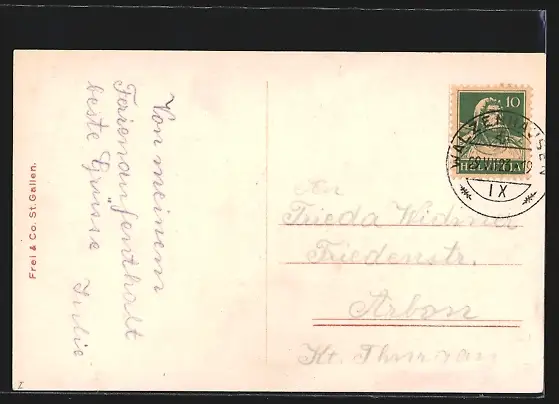 Von meinem
Ferienaufenthalt
beste Grüsse
Julie
Frei & Co. St. Gallen.
10
HELVETIA
WALZENHAUSEN
IX
An
Frieda Widmer
Friedenstr.
Arbon
Kt. Thurgau